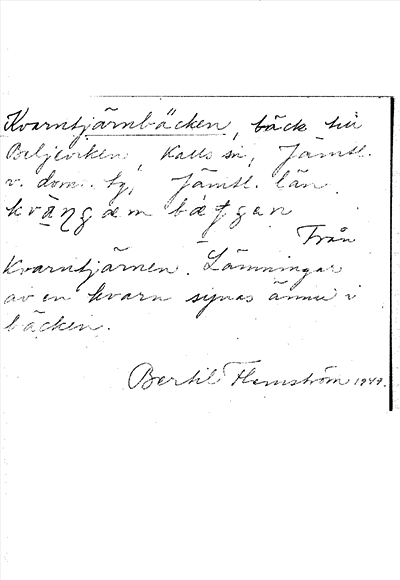 Kvarntjärnbäcken, bäck till
Beljeviken, Kalls sn, Jämtl.
v. doms. tg, Jämtl. län.
Från
Kvarntjärnen. Lämningar
av en kvarn synas ännu i
bäcken.
Bertil Flemström 1949.